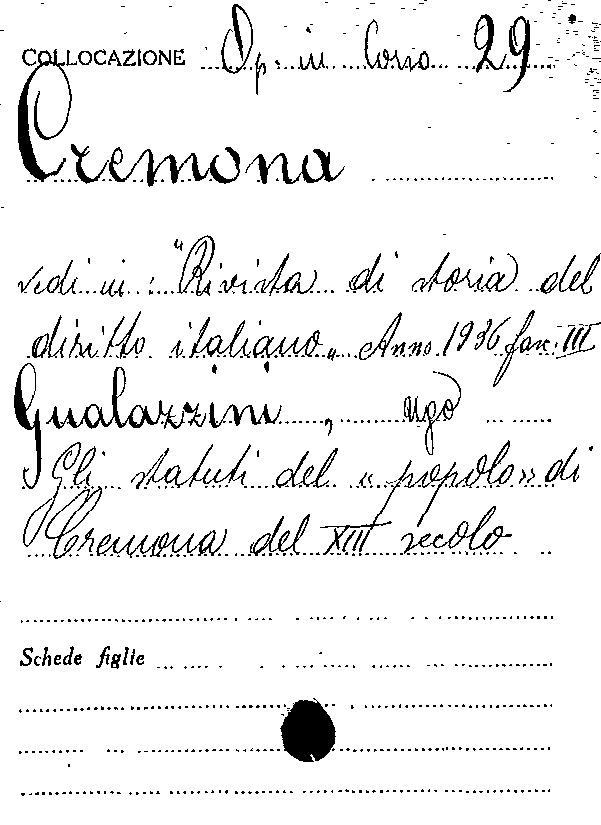 COLLOCAZIONE Op. in Corso 29
Cremona
vedi in: "Rivista di storia del
diritto italiano„ Anno 1936 fasc. III
Gualazzini, Ugo
Gli statuti del «popolo» di
Cremona del XIII secolo
Schede figlie